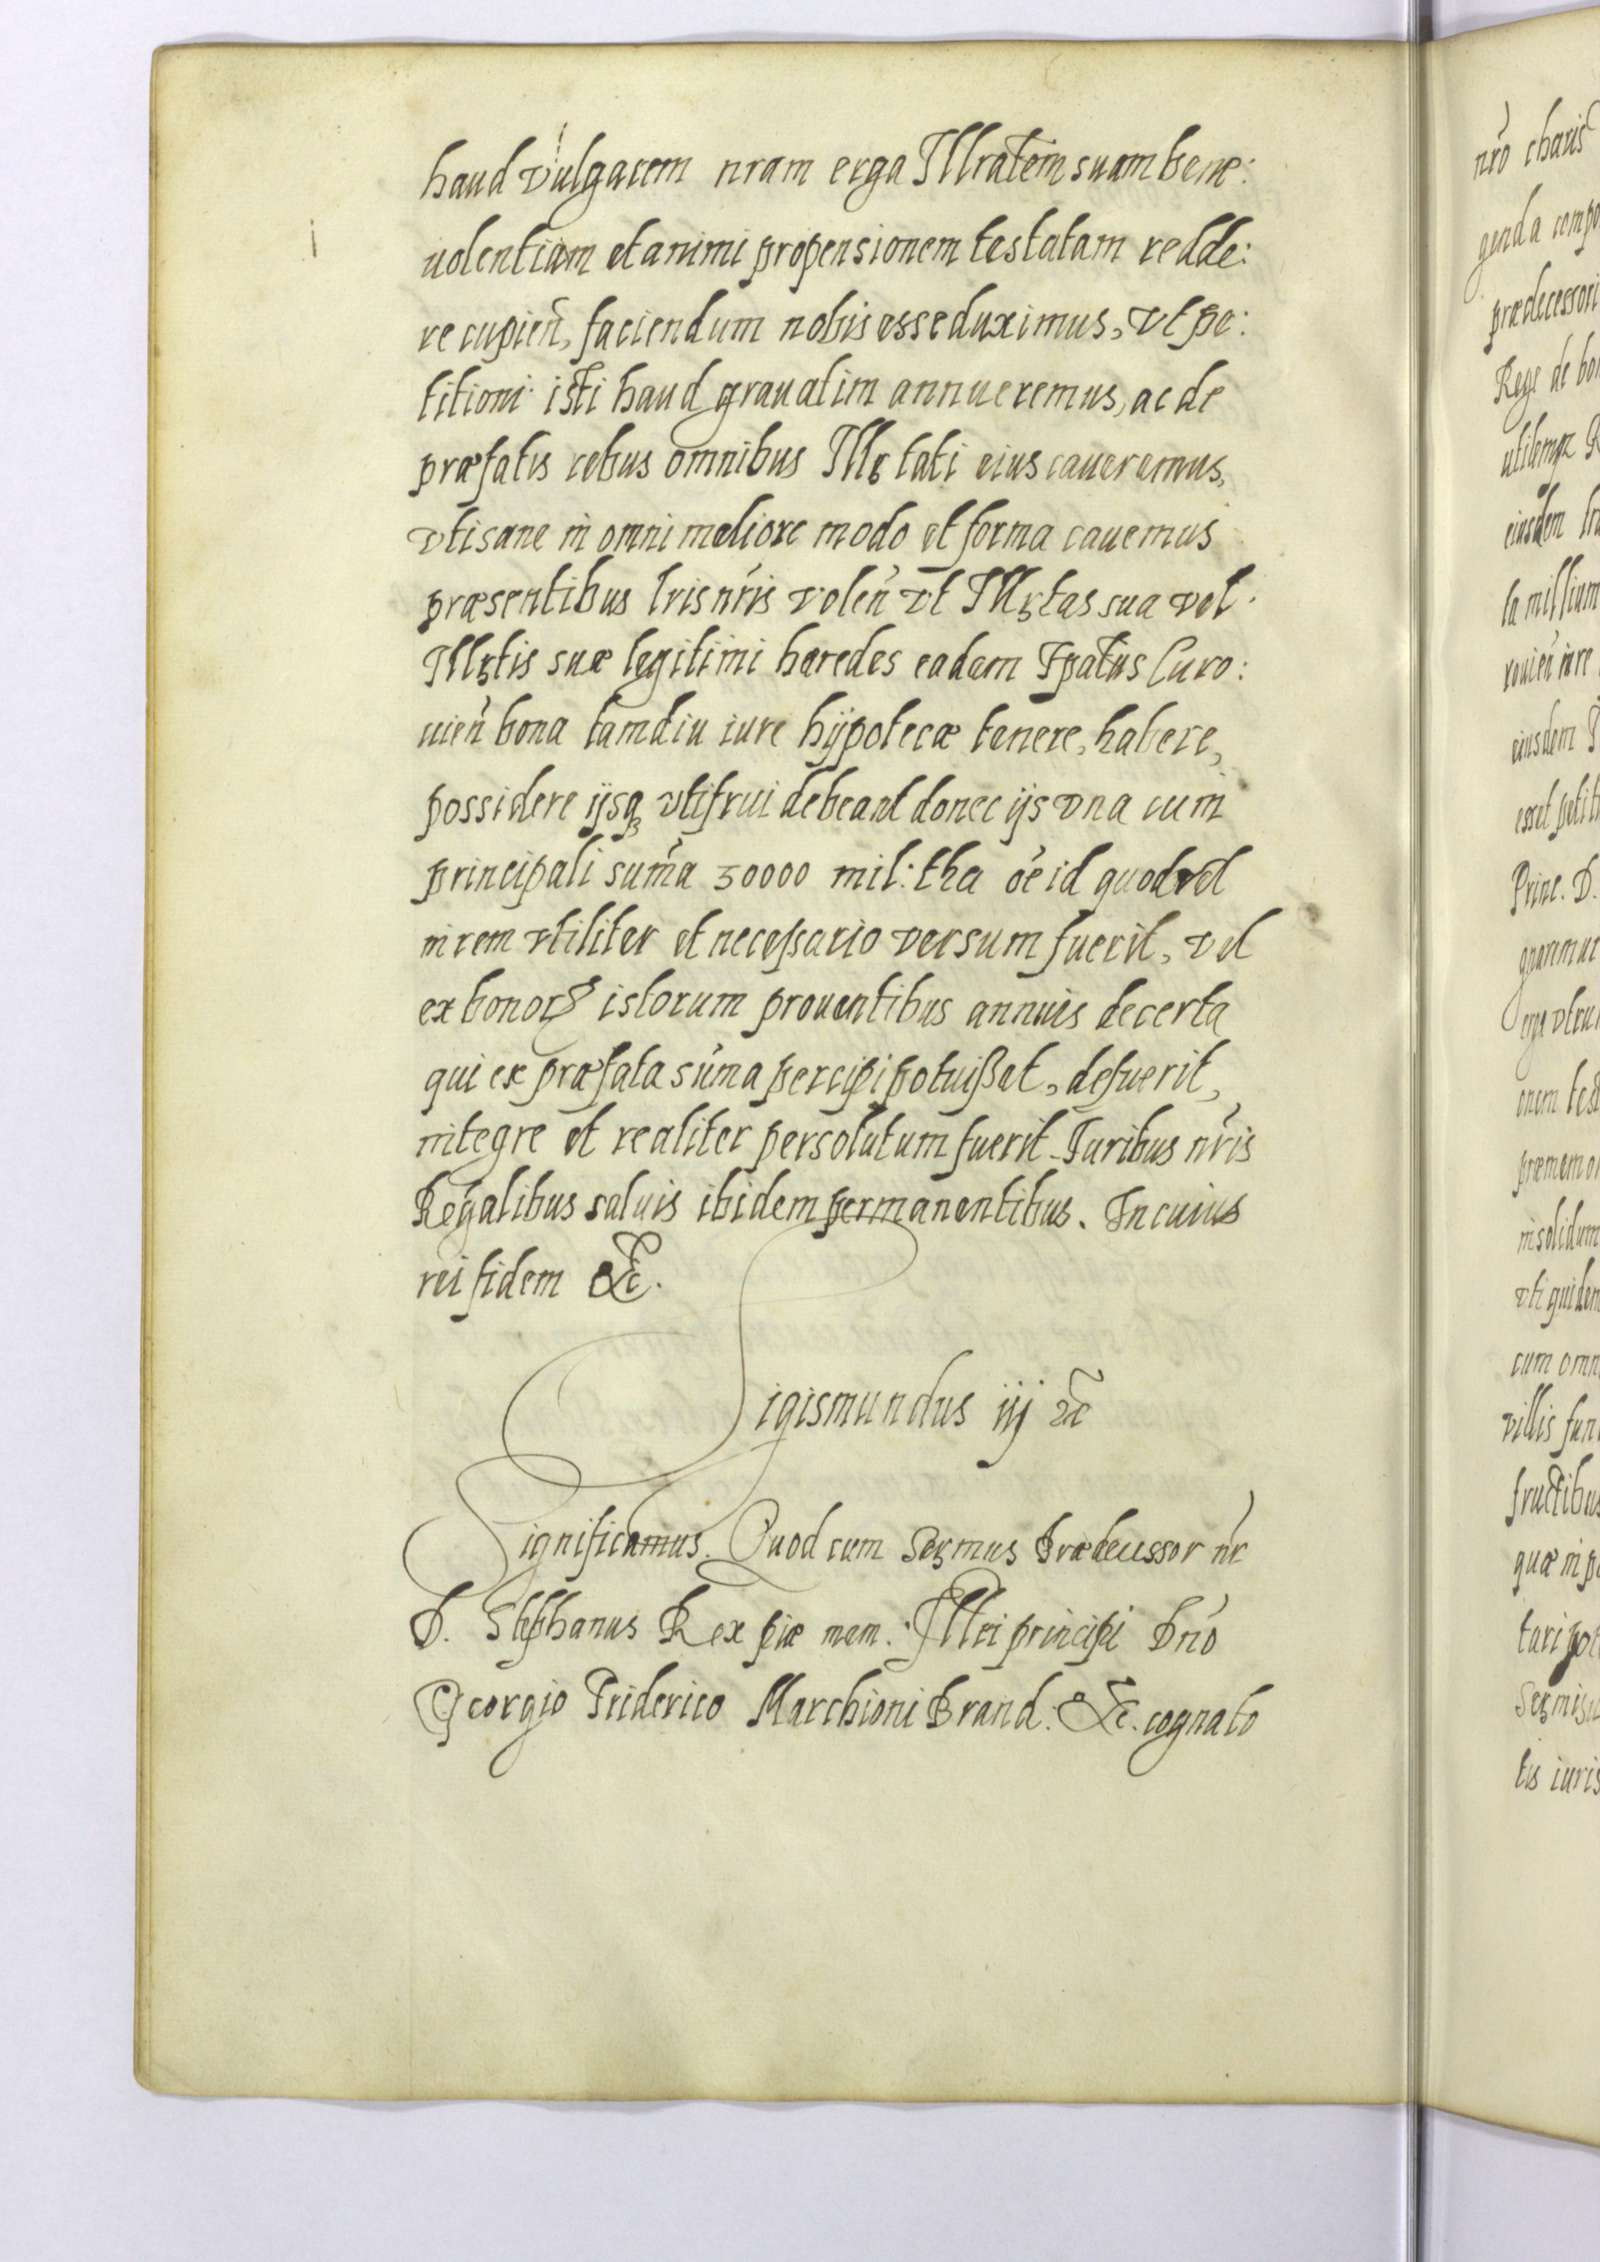 haud vulgarem nram erga Illratem suam bene:
uolentiam et animi propensionem testatam redde:
re cupien, faciendum nobis esse duximus, vt pe:
titioni isti haud grauatim annueremus, ac de
præfatis rebus omnibus Illr tati eius caueremus,
vti sane in omni meliore modo et forma cauemus
præsentibus lris nris volen vt Illrtas sua vel
Illrtis suæ legitimi hæredes eadem Epatus Curo:
nien bona tamdiu iure hÿpotecæ tenere, habere,
possidere ijsq vtifrui debeant donec ijs vna cum
principali suma 30000 mil: tha oe id quod vel
in rem vtiliter et necessario versum fuerit, vel
ex bonor istorum prouentibus annuis decerta
qui ex præfata suma percipi potuisset, defuerit,
integre et realiter persolutum fuerit. Iuribus nris
Regalibus saluis ibidem permanentibus. In cuius
rei fidem &c.
Sigismundus iij &c
Significamus. Quod cum Sermus Prædecessor nr
D. Stephanus Rex piæ mem. Illri principi Dno
Georgio Friderico Marchioni Brand. &c. cognato
nro charis
genda compo
prædecessori
Rege de bo
utilemq R
eiusdem
ta millium
ronien iure
eiusdem
esset petiti
Princ. D.
erga vtru
onem tes
præmemor
in solidum
vti quidem
cum omn
villis fun
fructibus
quæ in p
tari pot
Sermis
tis iuris